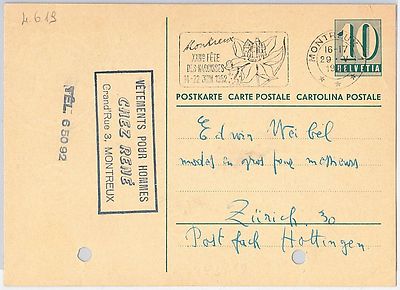 4.619
Montreux
XXIIe FÊTE
DES NARCISSES
14-22 JUIN 1952
MONTREUX
16-17
29.V
19
10
HELVETIA
POSTKARTE CARTE POSTALE CARTOLINA POSTALE
TÉL. 6 50 92
VÊTEMENTS POUR HOMMES
CHEZ RENÉ
Grand'Rue 3, MONTREUX
Edwin Weibel
modes en gros pour messieurs
Zürich 30
Postfach Hottingen